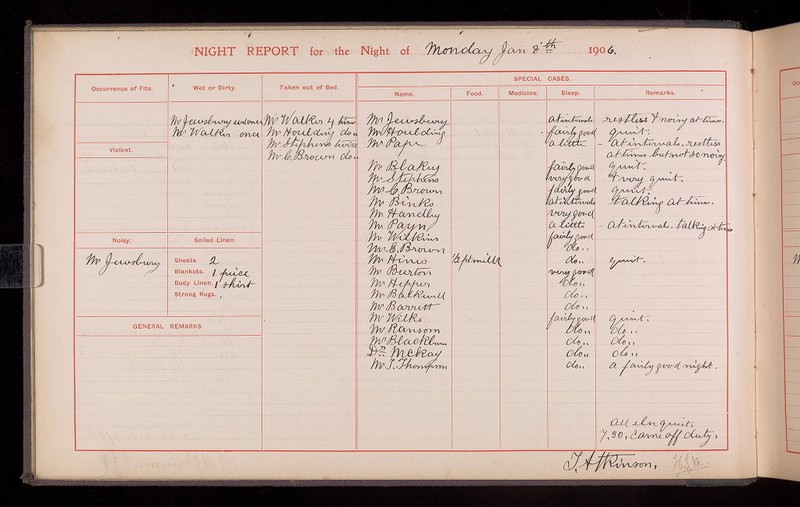 NIGHT REPORT for the Night of Monday Jan 8th 1906.
SPECIAL CASES.
Occurrence of Fits. Wet or Dirty. Taken out of Bed. Name. Food. Medicine. Sleep. Remarks.
Mr Jewsbury wet once Mr Walker 4 times Mr Jewsbury at intervals restless & noisy at times.
Mr Walker once Mr Houlding do,, Mr Houlding fairly good quit.
Mr Stephens twice Mr Pape a little - at intervals. restless
Violent. Mr C. Brown do,, at times but not so noisy
Mr Blakey fairly good quit.
Mr Stephens very good & very quit.
Mr C. Brown fairly good quit.
Mr Binks at intervals talking at times.
Mr Handley very good
Mr Payn a little - at intervals. talking at times
Noisy. Soiled Linen Mr Wilkins fairly good
Mr E. Brown do,,
Mr Jewsbury Sheets. 2 Mr Hines ½ pt milk do,, quit.
Blankets. 1 piece Mr Burton very good
Body Linen. 1 shirt Mr Hepper do,,
Strong Rugs. Mr Backwell do,,
Mr Barratt do,,
Mr Wilks fairly good quit.
GENERAL REMARKS. Mr Ransom do,, do,,
Mr Blackburn do,, do,,
Dr McKay do,, do,,
Mr J. Thompson do,, a fairly good night.
all else quit.
7.30, Came off duty,
T. Atkinson,